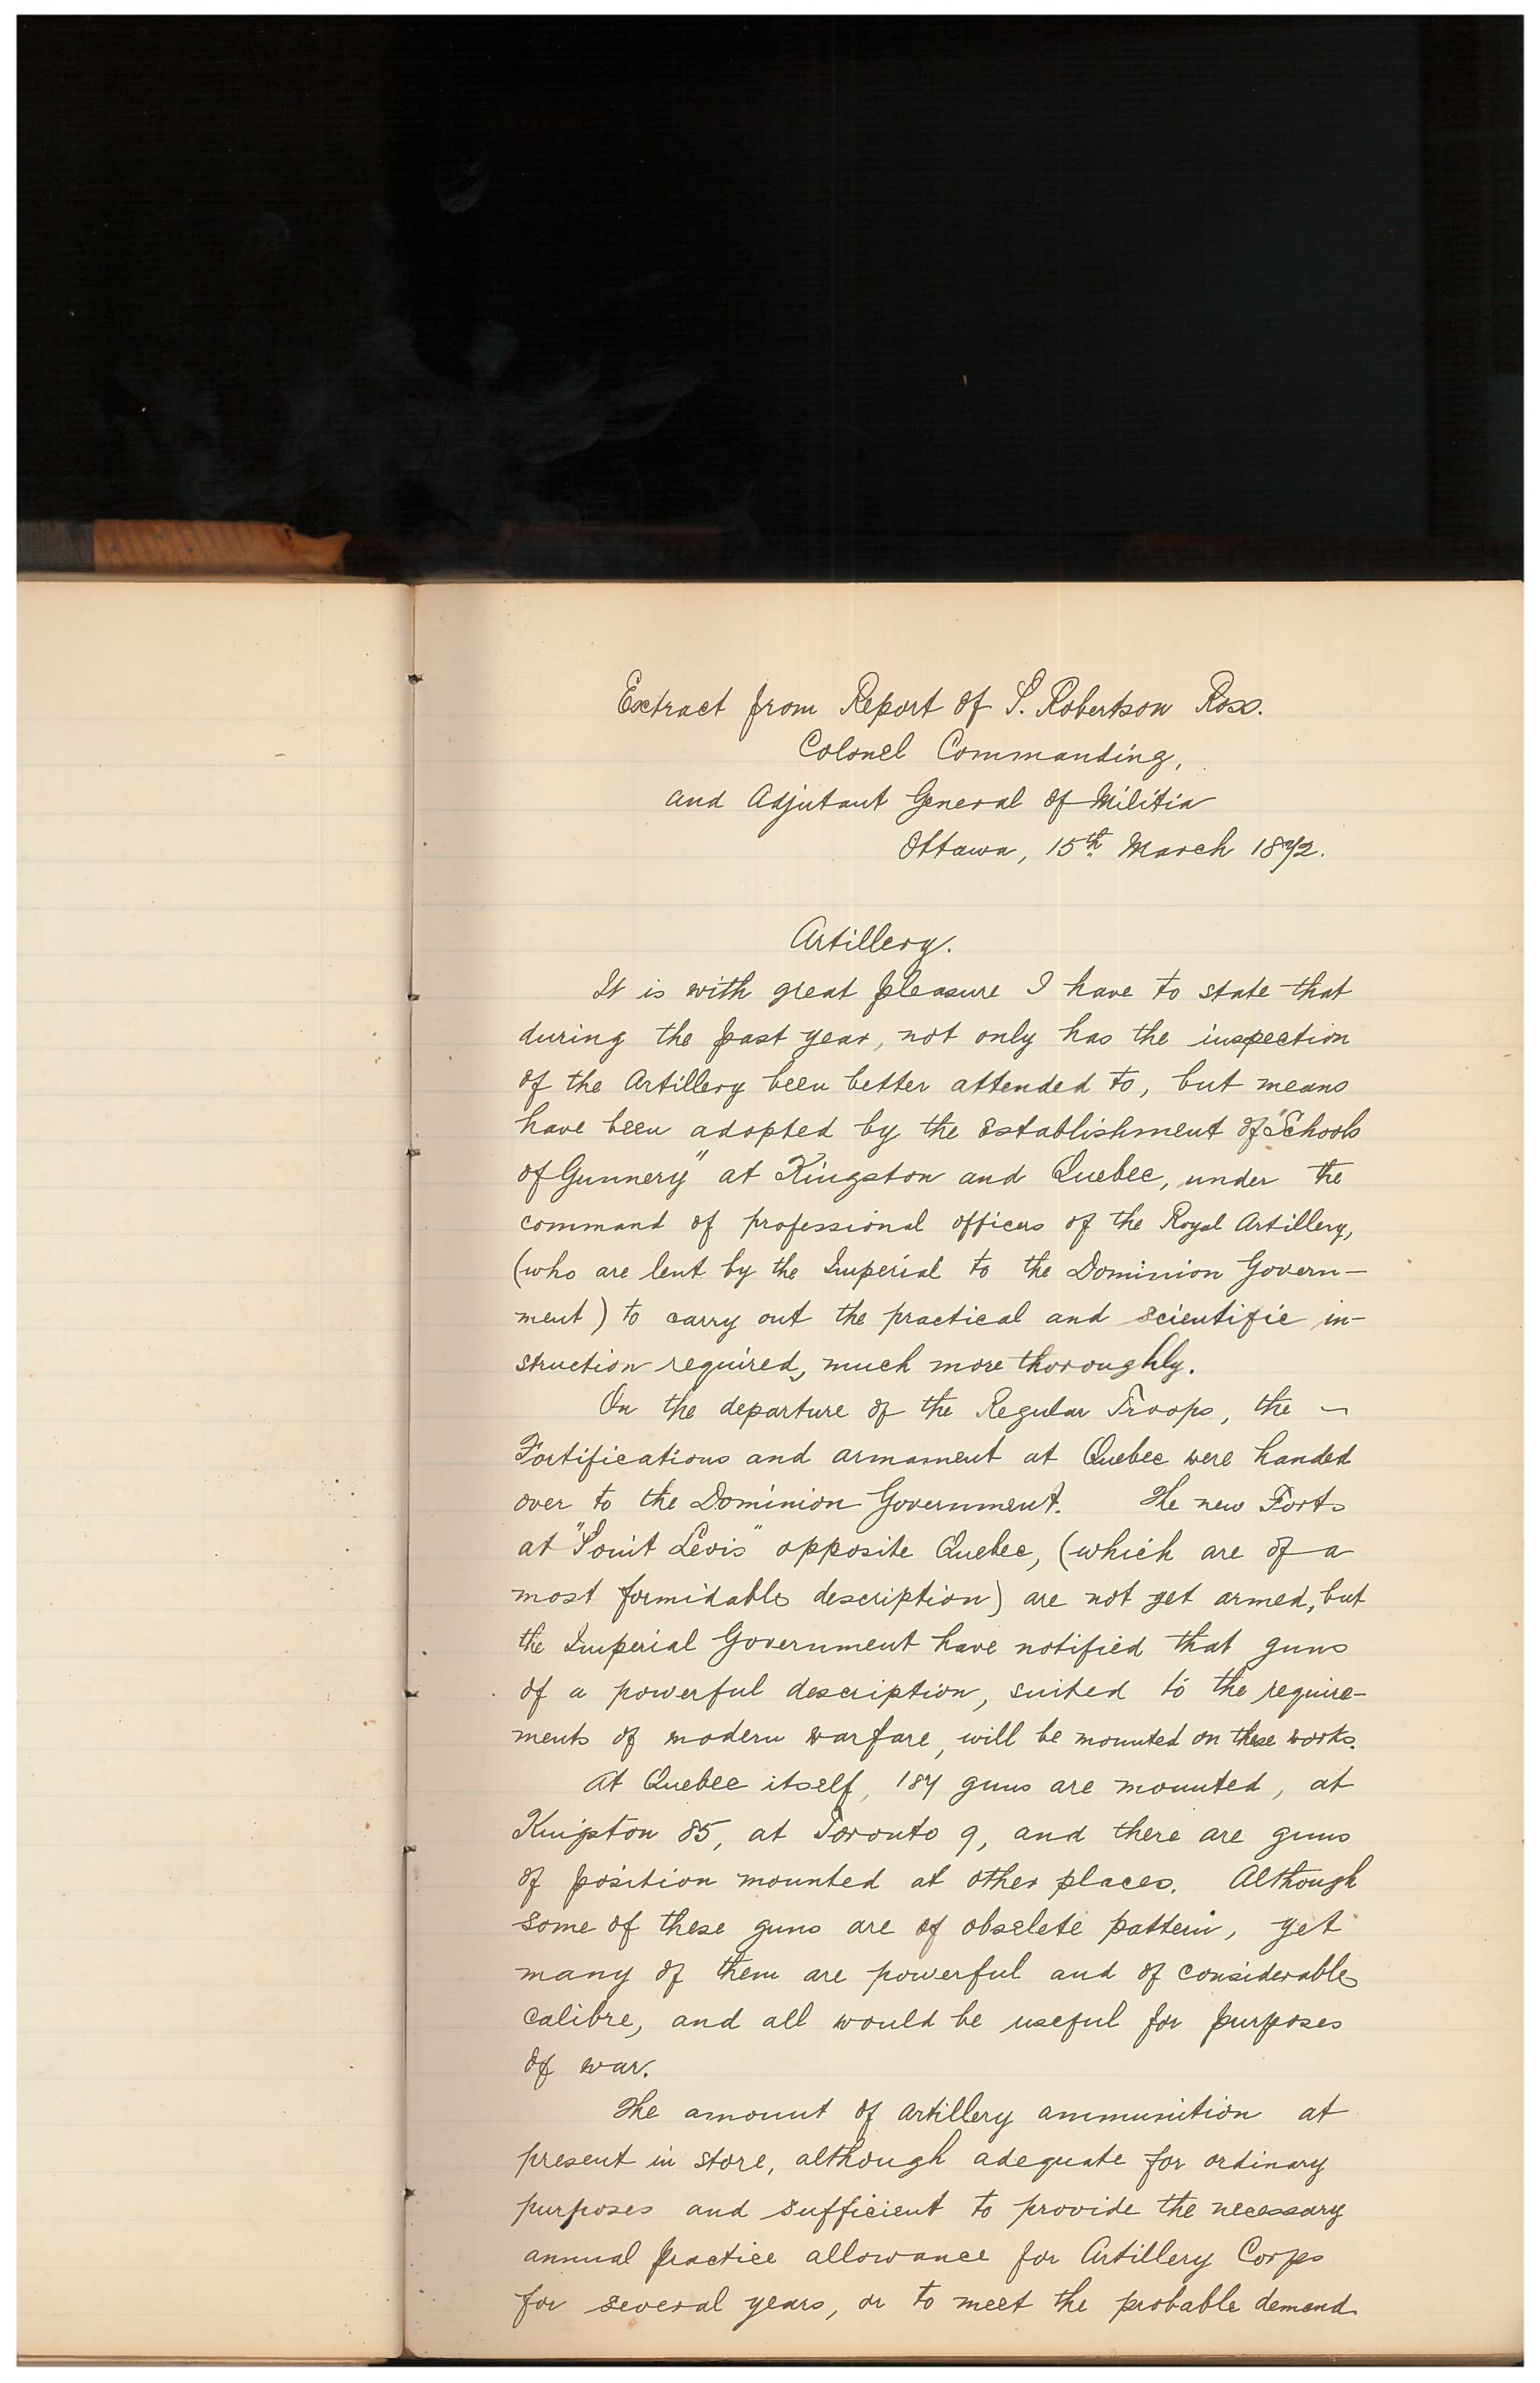 Extract from Report of P. Robertson Ross.
Colonel Commanding,
and Adjutant General of Militia
Ottawa, 15th March 1872.
Artillery.
It is with great pleasure I have to state that
during the past year, not only has the inspection
of the Artillery been better attended to, but means
have been adopted by the establishment of "Schools
of Gunnery" at Kingston and Quebec, under the
command of professional officers of the Royal Artillery,
(who are lent by the Imperial to the Dominion Govern-
ment) to carry out the practical and scientific in-
struction required, much more thoroughly.
On the departure of the Regular Troops, the
Fortifications and armament at Quebec were handed
over to the Dominion Government. The new Forts
at "Point Levis" opposite Quebec, (which are of a
most formidable description) are not yet armed, but
the Imperial Government have notified that guns
of a powerful description, suited to the require-
ments of modern warfare, will be mounted on these works.
At Quebec itself, 187 guns are mounted, at
Kingston 85, at Toronto 9, and there are guns
of position mounted at other places. Although
some of these guns are of obselete pattern, yet
many of them are powerful and of considerable
calibre, and all would be useful for purposes
of war.
The amount of artillery ammunition at
present in store, although adequate for ordinary
purposes and sufficient to provide the necessary
annual practice allowance for Artillery Corps
for several years, or to meet the probable demand